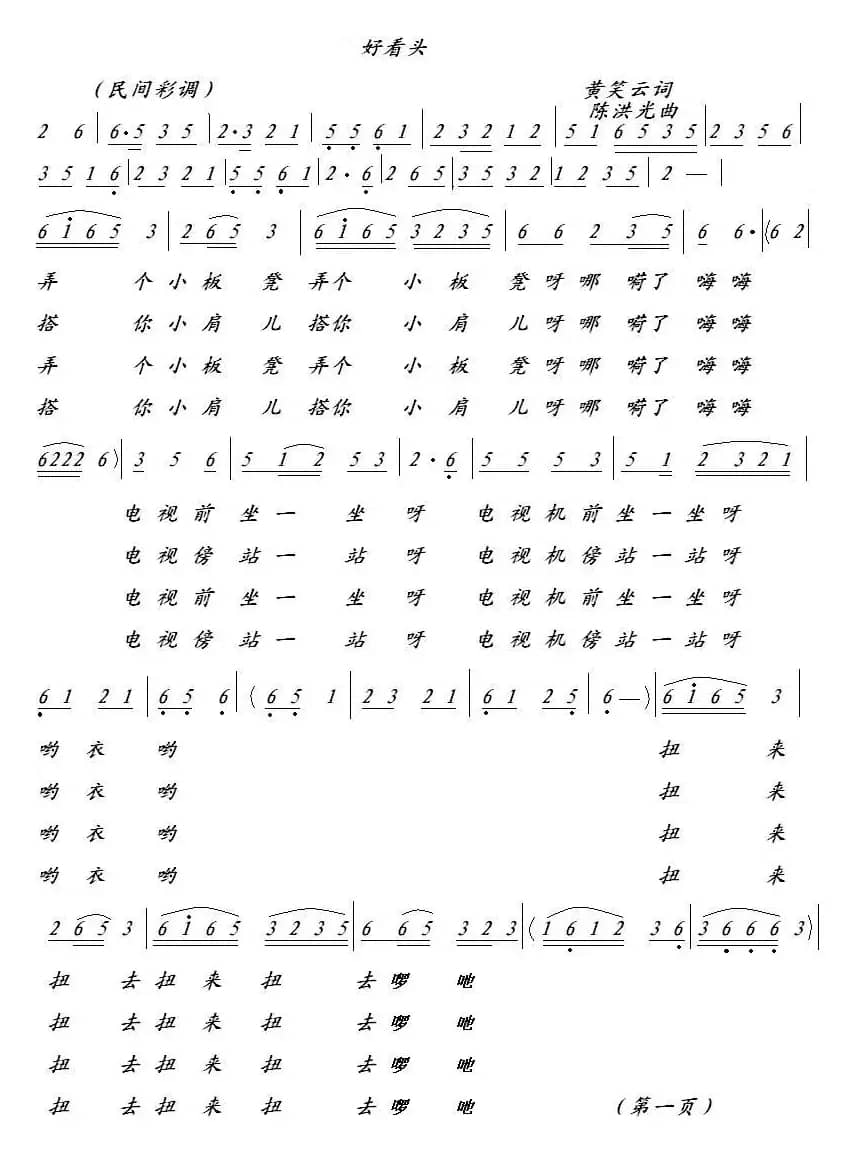 好看头
（民间彩调） 黄笑云词
陈洪光曲
2 6 | 6·5 3 5 | 2·3 2 1 | 5 5 6 1 | 2 3 2 1 2 | 5 1 6 5 3 5 | 2 3 5 6
3 5 1 6 | 2 3 2 1 | 5 5 6 1 | 2· 6 | 2 6 5 | 3 5 3 2 | 1 2 3 5 | 2 — |
6 i 6 5 3 | 2 6 5 3 | 6 i 6 5 3 2 3 5 | 6 6 2 3 5 | 6 6· | (6 2
弄 个小板 凳 弄个 小 板 凳呀哪 嗬了 嗨嗨
搭 你小肩 儿 搭你 小 肩 儿呀哪 嗬了 嗨嗨
弄 个小板 凳 弄个 小 板 凳呀哪 嗬了 嗨嗨
搭 你小肩 儿 搭你 小 肩 儿呀哪 嗬了 嗨嗨
6222 6) | 3 5 6 | 5 1 2 5 3 | 2· 6 | 5 5 5 3 | 5 1 2 3 2 1 |
电视前 坐一 坐 呀 电视机前坐一坐呀
电视傍 站一 站 呀 电视机傍站一站呀
电视前 坐一 坐 呀 电视机前坐一坐呀
电视傍 站一 站 呀 电视机傍站一站呀
6 1 2 1 | 6 5 6 | (6 5 1 | 2 3 2 1 | 6 1 2 5 | 6 —) | 6 i 6 5 3 |
哟衣 哟 扭 来
哟衣 哟 扭 来
哟衣 哟 扭 来
哟衣 哟 扭 来
2 6 5 3 | 6 i 6 5 3 2 3 5 | 6 6 5 3 2 3 | (1 6 1 2 3 6 | 3 6 6 6 3) |
扭 去扭 来 扭 去啰 吔
扭 去扭 来 扭 去啰 吔
扭 去扭 来 扭 去啰 吔
扭 去扭 来 扭 去啰 吔 （第一页）